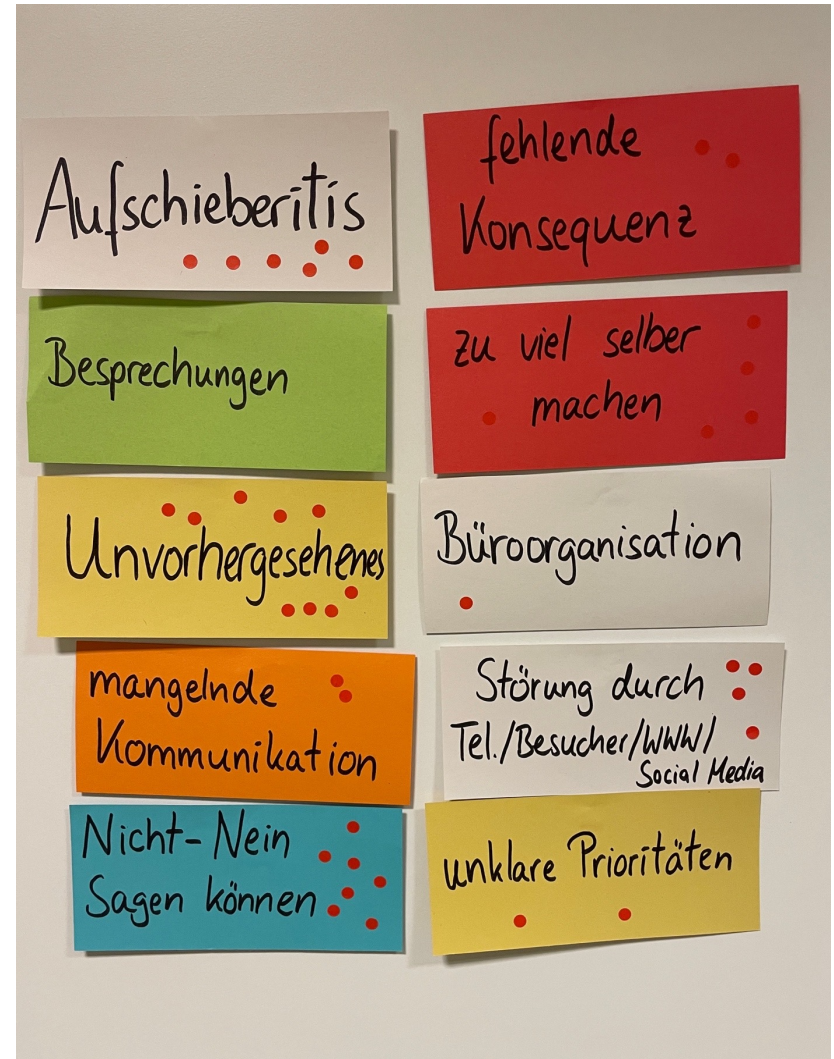 Aufschieberitis
Besprechungen
Unvorhergesehenes
mangelnde
Kommunikation
Nicht-Nein
Sagen können
fehlende
Konsequenz
zu viel selber
machen
Büroorganisation
Störung durch
Tel./Besucher/WWW/
Social Media
unklare Prioritäten